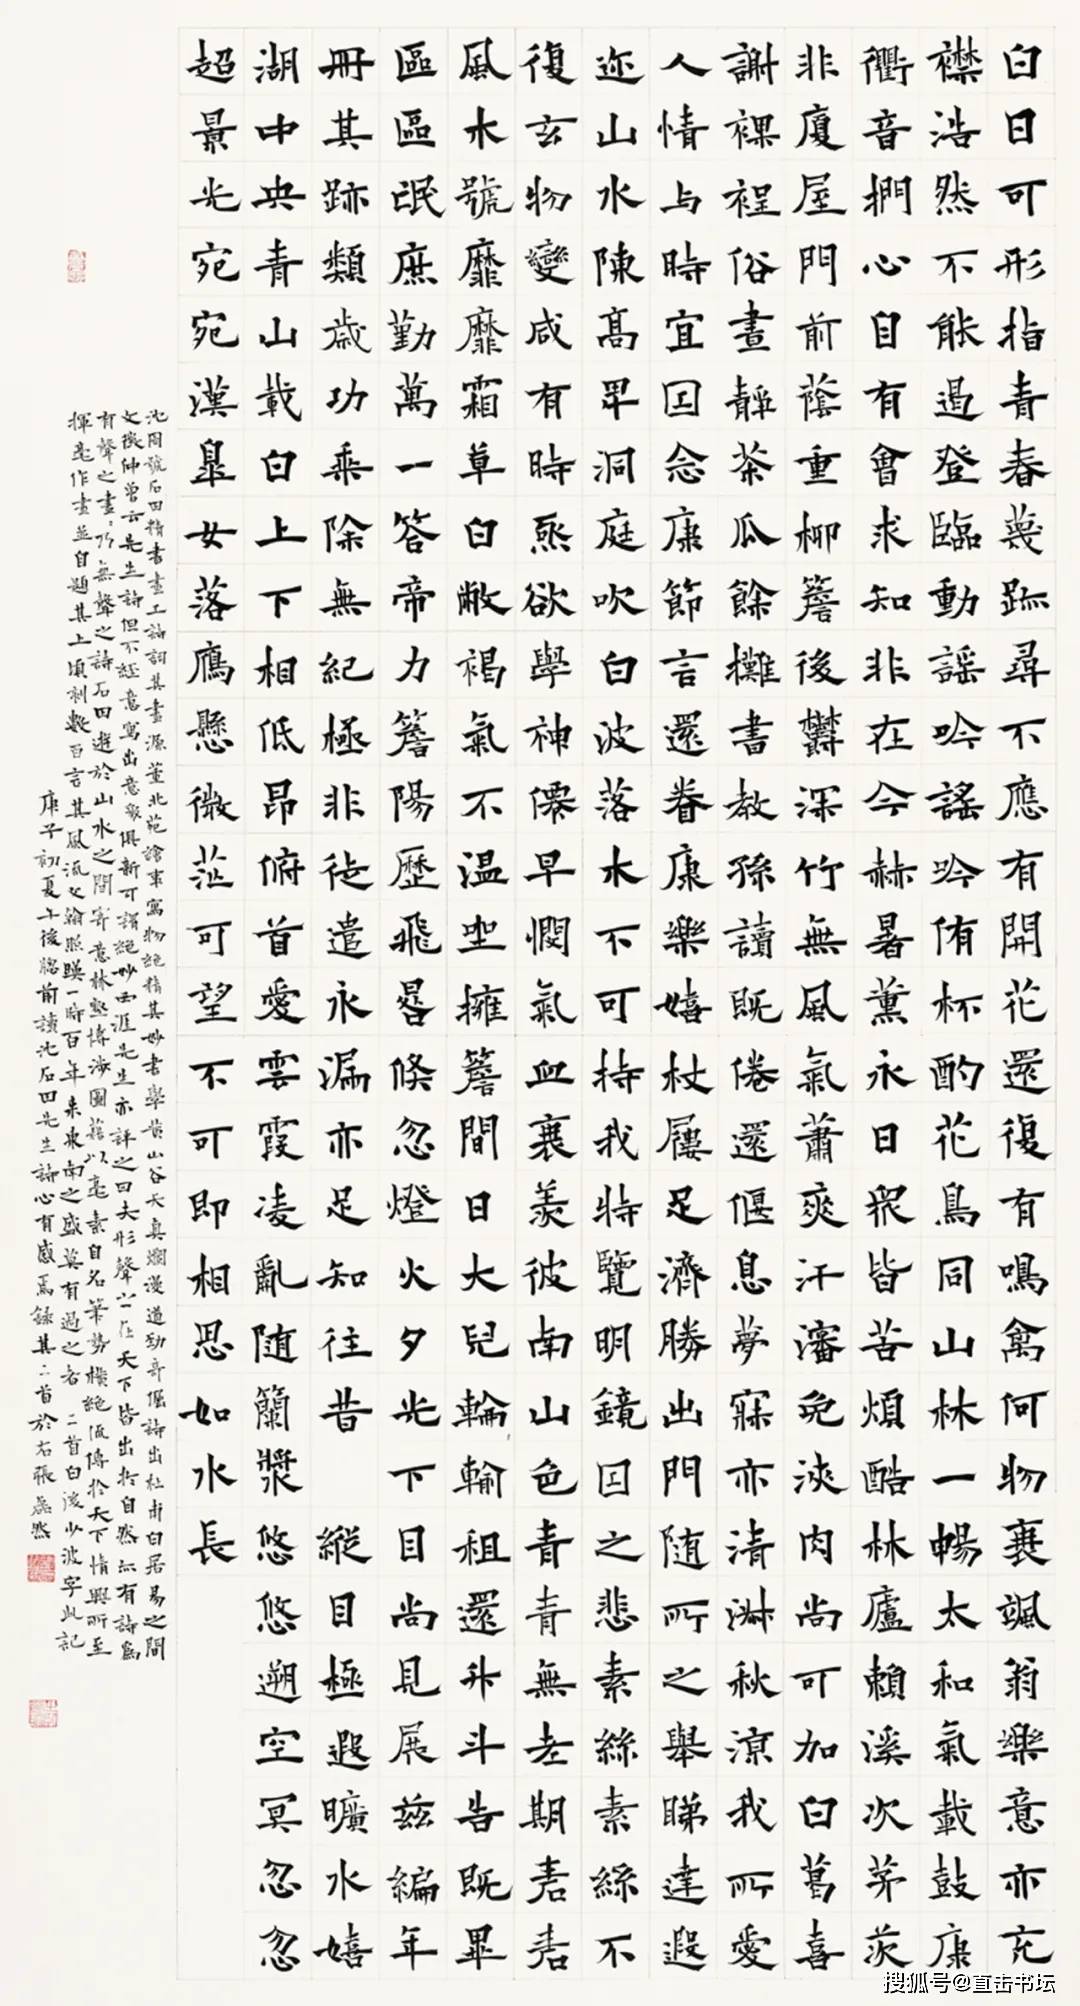 白日可形指青春蔑跡尋不應有開花還復有鳴禽何物襄颯翁樂意亦充
襟浩然不能過登臨動謡吟謡吟侑杯酌花鳥同山林一暢太和氣載鼓康
衢音捫心自有會求知非在今赫暑薰永日衆皆苦煩酷林廬賴溪次茅茨
非廈屋門前蔭重柳簷後欝深竹無風氣蕭爽汗瀋免浹肉尚可加白葛喜
謝裸裎俗晝靜茶瓜餘攤書教孫讀既倦還偃息夢寐亦清淋秋涼我所愛
人情与時宜因念康節言還眷康樂嬉杖屨足濟勝出門随所之舉睇達遐
迩山水陳高罕洞庭吹白波落木下可持我特覽明鏡因之悲素絲素絲不
復玄物變咸有時烝欲學神僊早憫氣血衰羨彼南山色青青無老期君君
風水號靡靡霜草白敝褐氣不温坐擁簷間日大兒輪輸租還升斗告既畢
區區氓庶勤萬一答帝力簷陽歷飛晷倏忽燈火夕光下目尚見展兹編年
冊其跡類歳功乘除無紀極非徒遣永漏亦足知往昔 縱目極遐曠水嬉
湖中央青山載白上下相低昂俯首愛雲霞凌亂随蘭槳悠悠遡空冥忽忽
超景光宛宛漢皐女落鴈懸微茫可望不可即相思如水長
沈周號石田精書畫工詩詞其畫源董北苑諸家寫物絶精其妙書學黄山谷天真爛漫遒勁奇倔詩出杜甫白居易之間
文徵仲曾云先生詩但不經意寫出意象俱新可謂絶妙西涯先生亦評之曰夫形聲皆在天下皆出於自然亦有詩爲
有聲之畫畫乃無聲之詩石田遊於山水之間寄意林壑博涉圖籍以毫素自名筆勢横絶流傳於天下情興所至
揮毫作畫並自題其上頃刻數百言其風流文翰照暎一時百年來東南之盛莫有過之者 二首白波少波字此記
庚子初夏午後牕前讀沈石田先生詩心有感焉錄其二首於右張燕然
搜狐号@直击书坛